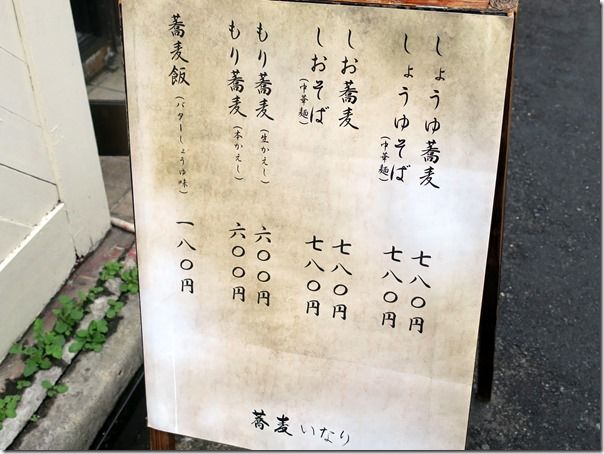 しょうゆ蕎麦 七八〇円
しょうゆそば(中華麺) 七八〇円
しお蕎麦 七八〇円
しおそば(中華麺) 七八〇円
もり蕎麦(生かえし) 六〇〇円
もり蕎麦(本かえし) 六〇〇円
蕎麦飯(バターしょうゆ味) 一八〇円
蕎麦いなり